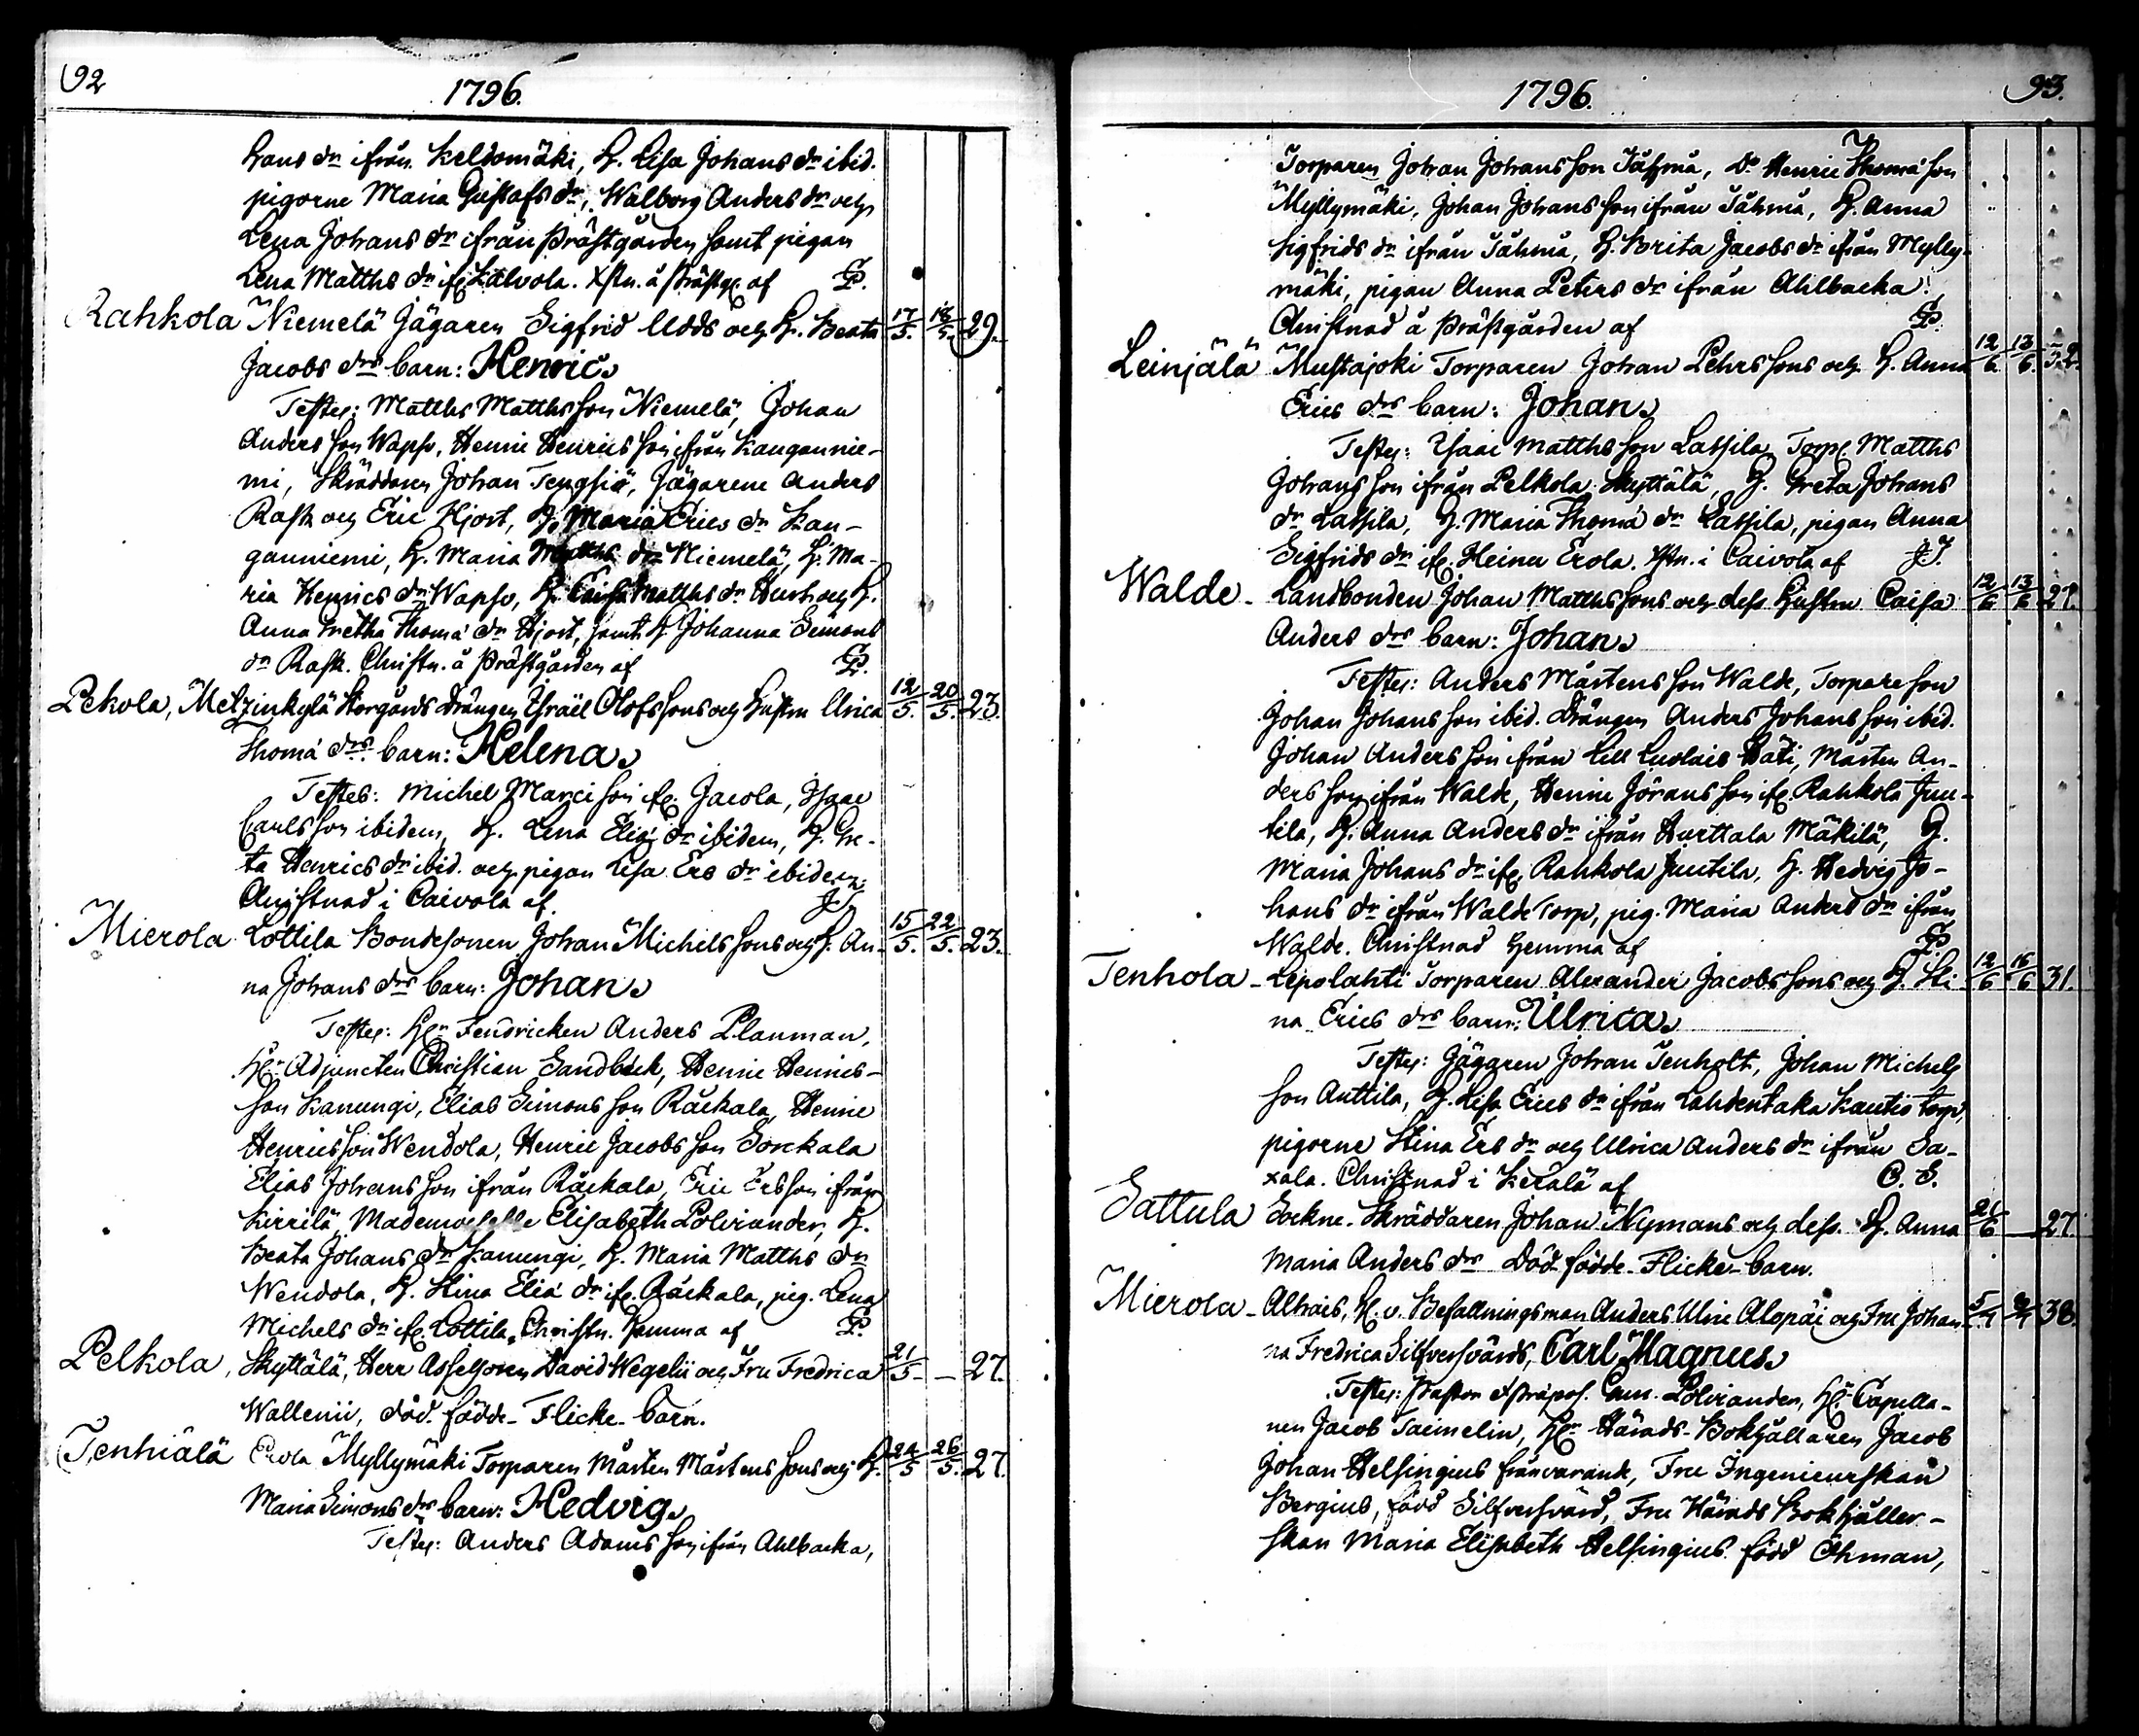 92
1796.
Hans dr ifrån Keldomäki, H. Lisa Johans dr ibid.
pigorne Maria Gustafs dr, Walborg Anders dr och
Lena Johans dr ifrån Prästgården samt pigan
Lena Matths dr ifr. Kalvola. Xstn. å Prästg. af
Rahkola Niemelä Jägaren Sigfrid Udds och H. Beata 17/5. 18/5. 29.
Jacobs drs barn: Henric.
Testes: Matths Matthsson Niemelä, Johan
Andersson Wapso, Henric Henricsson ifrån Kangannie-
mi, Skräddaren Johan Tengsiö, Jägarene Anders
Rask och Eric Hjort, H. Maria Erics dr Kan-
ganniemi, H. Maria Matths dr Niemelä, H. Ma-
ria Henrics dr Wapso, H. Caisa Matths dr Hurt och H.
Anna Gretha Thomæ dr Hjort, samt H. Johanna Simons
dr Rask. Christn. å Prästgården af
Pekola, Metzinkylä Storgårds Drängen Israël Olofssons och Hustru Ulrica 12/5. 20/5. 23.
Thomæ drs barn: Helena.
Testes: Michel Marcisson ifr. Jacola, Isaac
Carlsson ibidem, H. Lena Eliæ dr ibidem, H. Gre-
ta Henrics dr ibid. och pigan Lisa Ers dr ibidem.
Christnad i Caivola af J.J.
Mierola Lottila Bondesonen Johan Michelssons och H. An- 15/5. 22/5. 23.
na Johans drs barn: Johan.
Testes: Hr Fendricken Anders Planman,
Hr Adjuncten Christian Sandbäck, Henric Henrics-
son Kanungi, Elias Simonsson Räckala, Henric
Henricsson Wendola, Henric Jacobsson Sorkala
Elias Johansson ifrån Räckala, Eric Ersson ifrån
Kirrilä, Mademoiselle Elisabeth Polviander, H.
Beata Johans dr Kanungi, H. Maria Matths dr
Wendola, H. Stina Eliæ dr ifr. Räckala, pig. Lena
Michels dr ifr. Lottila, Christn. hemma af
Pelkola, Skyttälä, Herr Assessoren David Wegelii och Fru Fredrica 21/5 — 27.
Wallenii, död födde Flicke-barn.
Tenhiälä Erola Myllymäki Torparen Mårten Mårtenssons och H. 24/5 26/5. 27.
Maria Simons drs barn: Hedvig.
Testes: Anders Adamsson ifrån Ahlbacka,
93.
1796.
Torparen Johan Johansson Jähmä, Do Henric Thomæson
Myllymäki, Johan Johansson ifrån Jähmä, H. Anna
Sigfrids dr ifrån Jähmä, H. Brita Jacobs dr ifrån Mylly-
mäki, pigan Anna Peters dr ifrån Ahlbacka.
Christnad å Prästgården af
Leinjälä Mustajoki Torparen Johan Pehrssons och H. Anna 12/6 13/6. 32.
Erics drs barn: Johan.
Testes: Isaac Matthsson Lassila, Torp. Matths
Johansson ifrån Pelkola Skyttälä, H. Greta Johans
dr Lassila, H. Maria Thomæ dr Lassila, pigan Anna
Sigfrids dr ifr. Heinu Erola. Xstn. i Caivola af J.J.
Walde - Landbonden Johan Matthssons och dess Hustru Caisa 12/6 13/6 27.
Anders drs barn: Johan.
Testes: Anders Mårtensson Walde, Torpareson
Johan Johansson ibid. Drängen Anders Johansson ibid.
Johan Andersson ifrån Lill Luolais Täti, Mårten An-
dersson ifrån Walde, Henric Jöransson ifr. Rahkola Jun-
tila, H. Anna Anders dr ifrån Hurttala Mäkilä, H.
Maria Johans dr ifr. Rahkola Juntila, H. Hedvig Jo-
hans dr ifrån Walde Torp, pig. Maria Anders dr ifrån
Walde. Christnad hemma af
Tenhola - Lepolahti Torparen Alexander Jacobssons och H. Sti- 12/6 16/6 31.
na Erics drs barn: Ulrica.
Testes: Jägaren Johan Tenholt, Johan Michels
son Anttila, H. Lisa Erics dr ifrån Lahdentaka Kautio torp,
pigorne Stina Ers dr och Ulrica Anders dr ifrån Sa-
xala. Christnad i Kerälä af C. S.
Sattula Sockne-Skräddaren Johan Nymans och dess H. Anna 21/6 — 27.
Maria Anders drs Död födde Flicke-barn.
Mierola - Alhais, H. v. Befallningsman Anders Ulric Alopæi och Fru Johan- 5/7 38.
na Fredrica Silfversvärds, Carl Magnus.
Testes: Pastor et Præpos. Gum. Polviander, Hr Capella-
nen Jacob Tacimelin, Hr Härads-Bokhållaren Jacob
Johan Helsingius frånvarande, Fru Ingenieurskan
Bergius, född Silfversvärd, Fru Härads Bokhåller-
skan Maria Elisabeth Helsingius född Öhman,